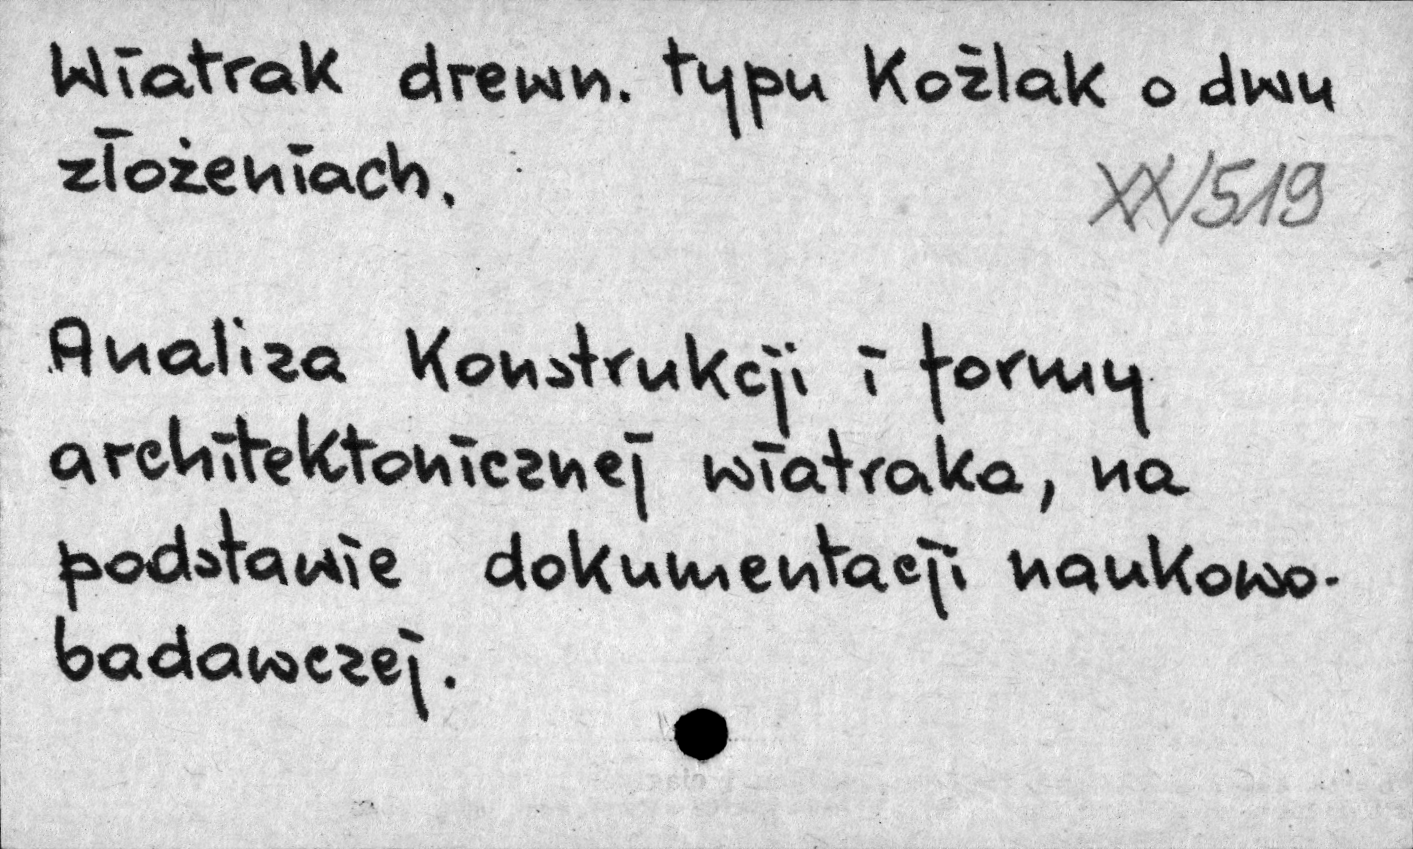 Wiatrak drewn. typu Koźlak o dwu
złożeniach.
XX/519
Analiza konstrukcji i formy
architektonicznej wiatraka, na
podstawie dokumentacji naukowo-
badawczej.